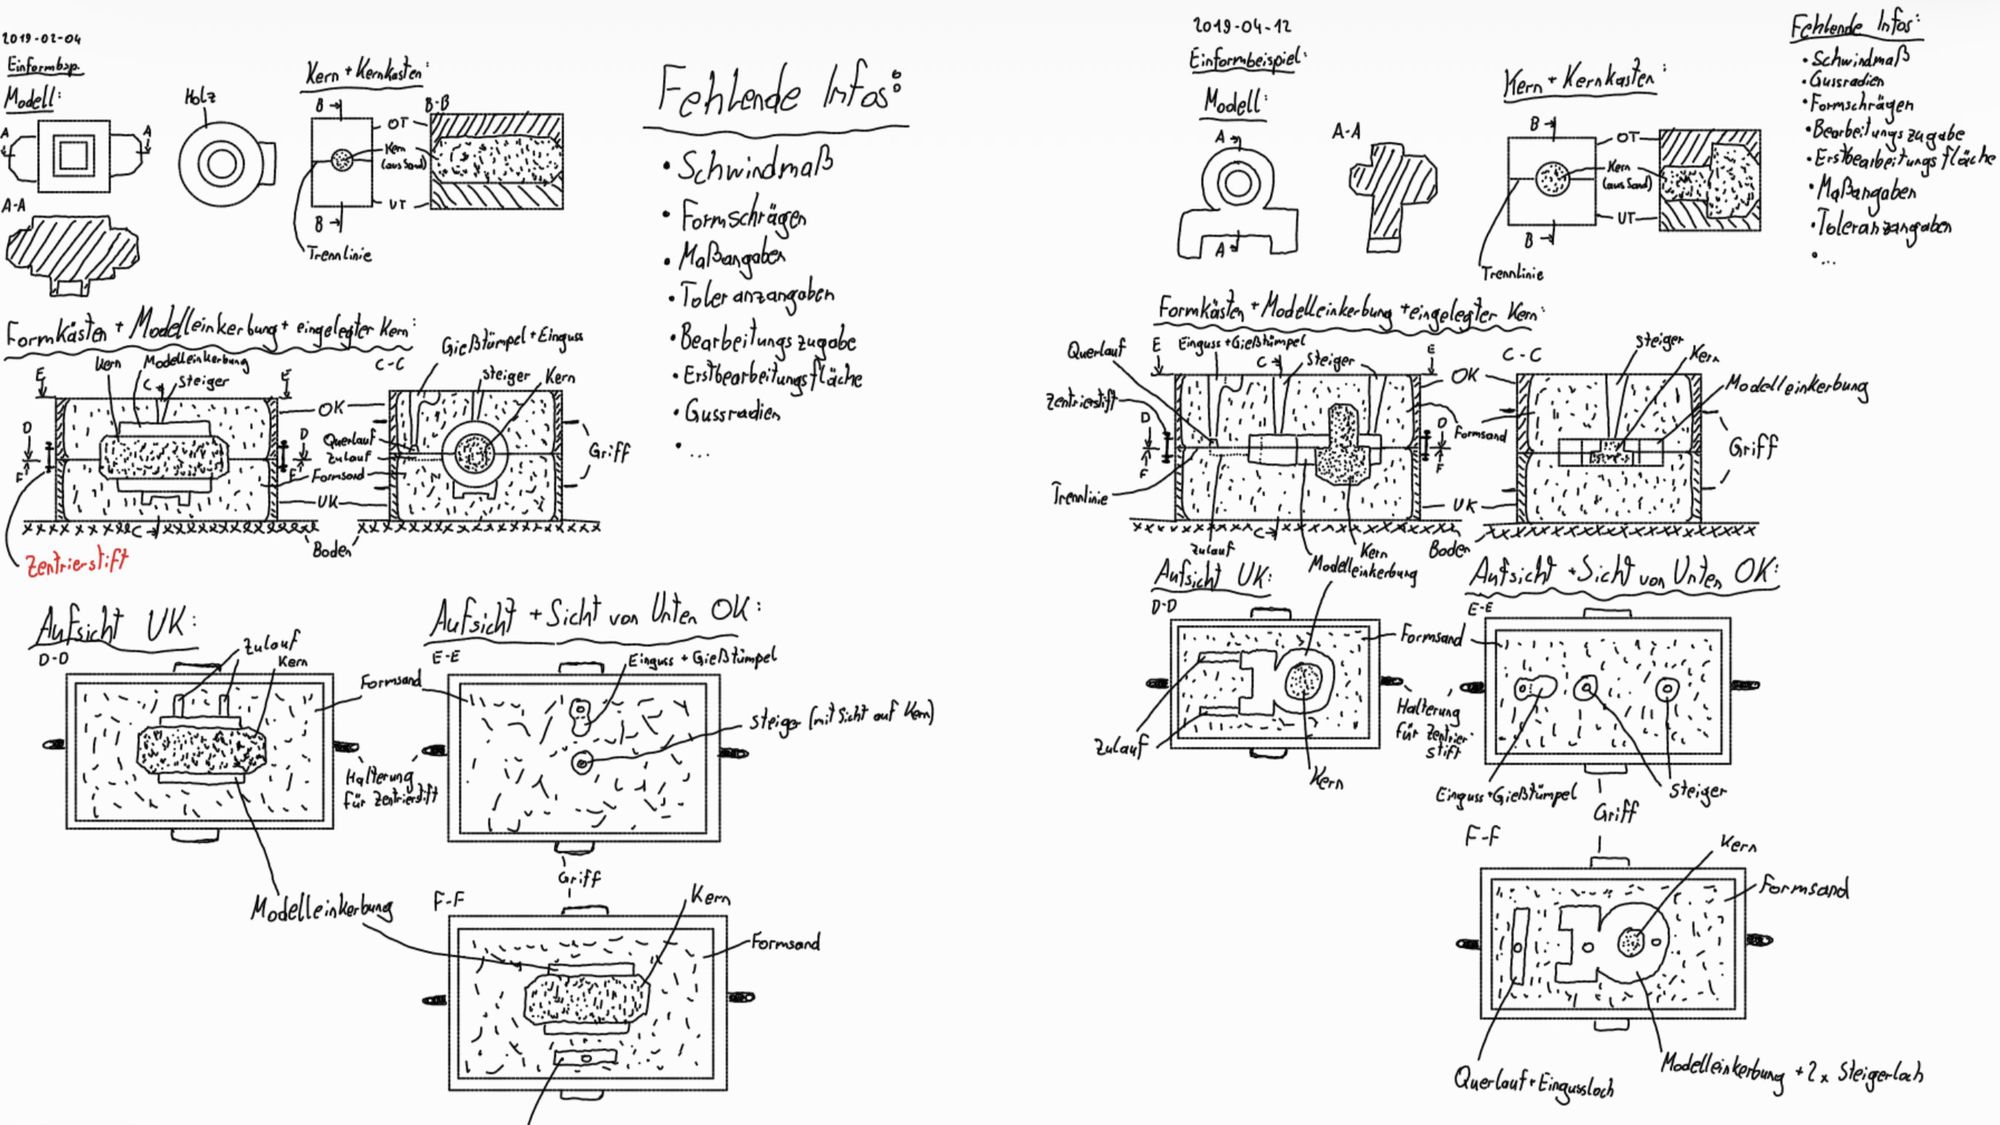 2019-02-04
Einformbsp.
Modell:
Holz
A
A
A-A
Kern + Kernkasten:
B
B-B
OT
Kern
(aus Sand)
UT
B
Trennlinie
Fehlende Infos:
• Schwindmaß
• Formschrägen
• Maßangaben
• Toleranzangaben
• Bearbeitungszugabe
• Erstbearbeitungsfläche
• Gussradien
• ...
Formkästen + Modelleinkerbung + eingelegter Kern:
Kern
Modelleinkerbung
C
Steiger
E
E
C-C
Gießtümpel + Einguss
Steiger
Kern
OK
D
D
Querlauf
Zulauf
F
F
Formsand
Griff
UK
C
Boden
Zentrierstift
Aufsicht UK:
D-D
Zulauf
Kern
Formsand
Halterung
für Zentrierstift
Modelleinkerbung
Aufsicht + Sicht von Unten OK:
E-E
Einguss + Gießtümpel
Steiger (mit Sicht auf Kern)
Griff
F-F
Kern
Formsand
2019-04-12
Einformbeispiel:
Modell:
A
A-A
A
Kern + Kernkasten:
B
OT
Kern
(aus Sand)
UT
B
Trennlinie
Fehlende Infos:
• Schwindmaß
• Gussradien
• Formschrägen
• Bearbeitungszugabe
• Erstbearbeitungsfläche
• Maßangaben
• Toleranzangaben
• ...
Formkästen + Modelleinkerbung + eingelegter Kern:
Querlauf
E
Einguss + Gießtümpel
C
Steiger
E
C-C
Steiger
Kern
OK
Modelleinkerbung
Zentrierstift
D
D
Formsand
F
F
Griff
Trennlinie
UK
Zulauf
C
Kern
Modelleinkerbung
Boden
Aufsicht UK:
D-D
Formsand
Zulauf
Kern
Halterung
für Zentrier-
stift
Aufsicht + Sicht von Unten OK:
E-E
Einguss + Gießtümpel
Steiger
Griff
F-F
Kern
Formsand
Querlauf + Eingussloch
Modelleinkerbung + 2x Steigerloch